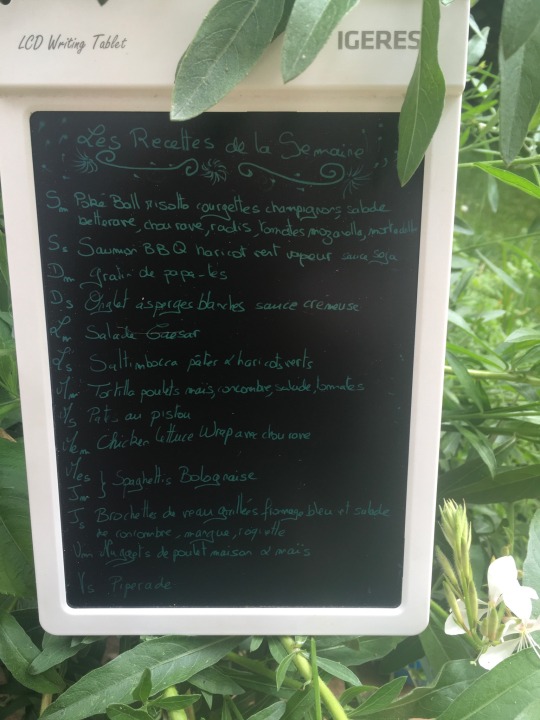 LCD Writing Tablet
IGERES
Les Recettes de la Semaine
Sm Poké Ball risotto courgettes champignons salade
betterave, chou rave, radis, tomates mozarella, mortadelle
Ss Saumon BBQ haricot vert vapeur sauce soja
Dm gratin de papa-tes
Ds Onglet asperges blanches sauce crémeuse
Lm Salade Caesar
Ls Saltimbocca pâtes & haricots verts
Mm Tortilla poulets maïs, concombre, salade, tomates
Ms Pat. au pistou
Mem Chicken lettuce Wrap avec chou rave
Mes } Spaghettis Bolognaise
Jm
Js Brochettes de veau grillés fromage bleu et salade
de concombre, mangue, roquette
Vm Nuggets de poulet maison & maïs
Vs Piperade